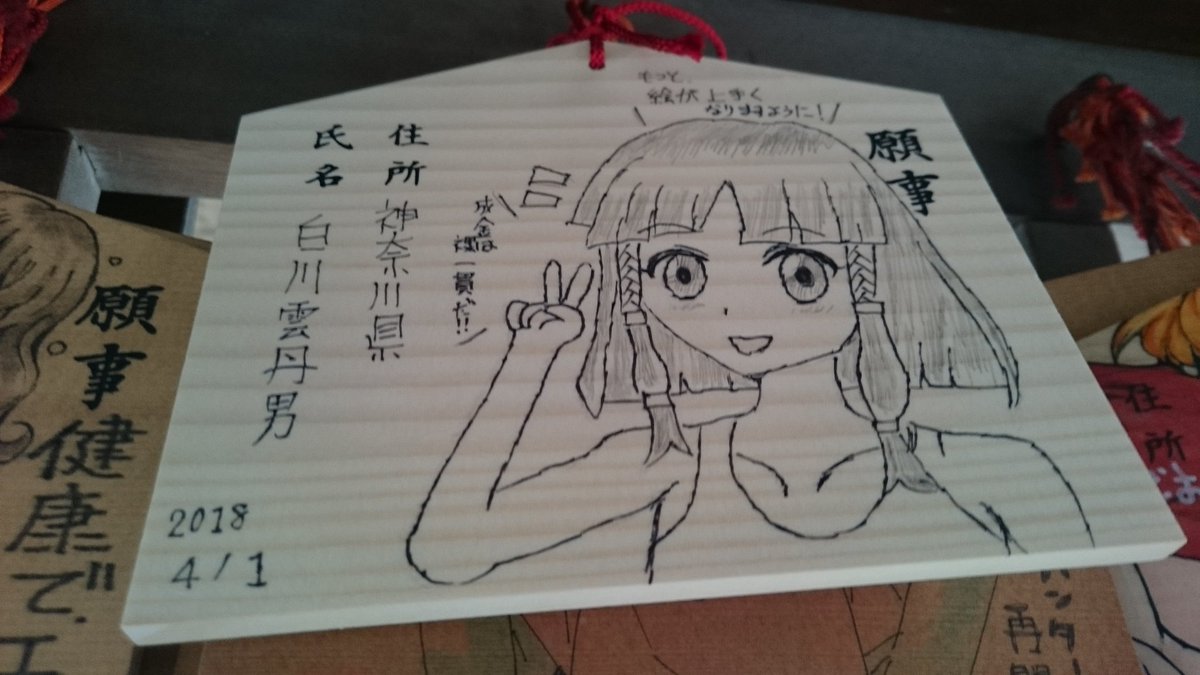 もっと、
絵が上手く
なりますように!
願事
成金は
裸一貫だ!!
住所 神奈川県
氏名 白川雲丹男
2018
4/1
願事
健康で、エ
住所
は
ハンター
再開